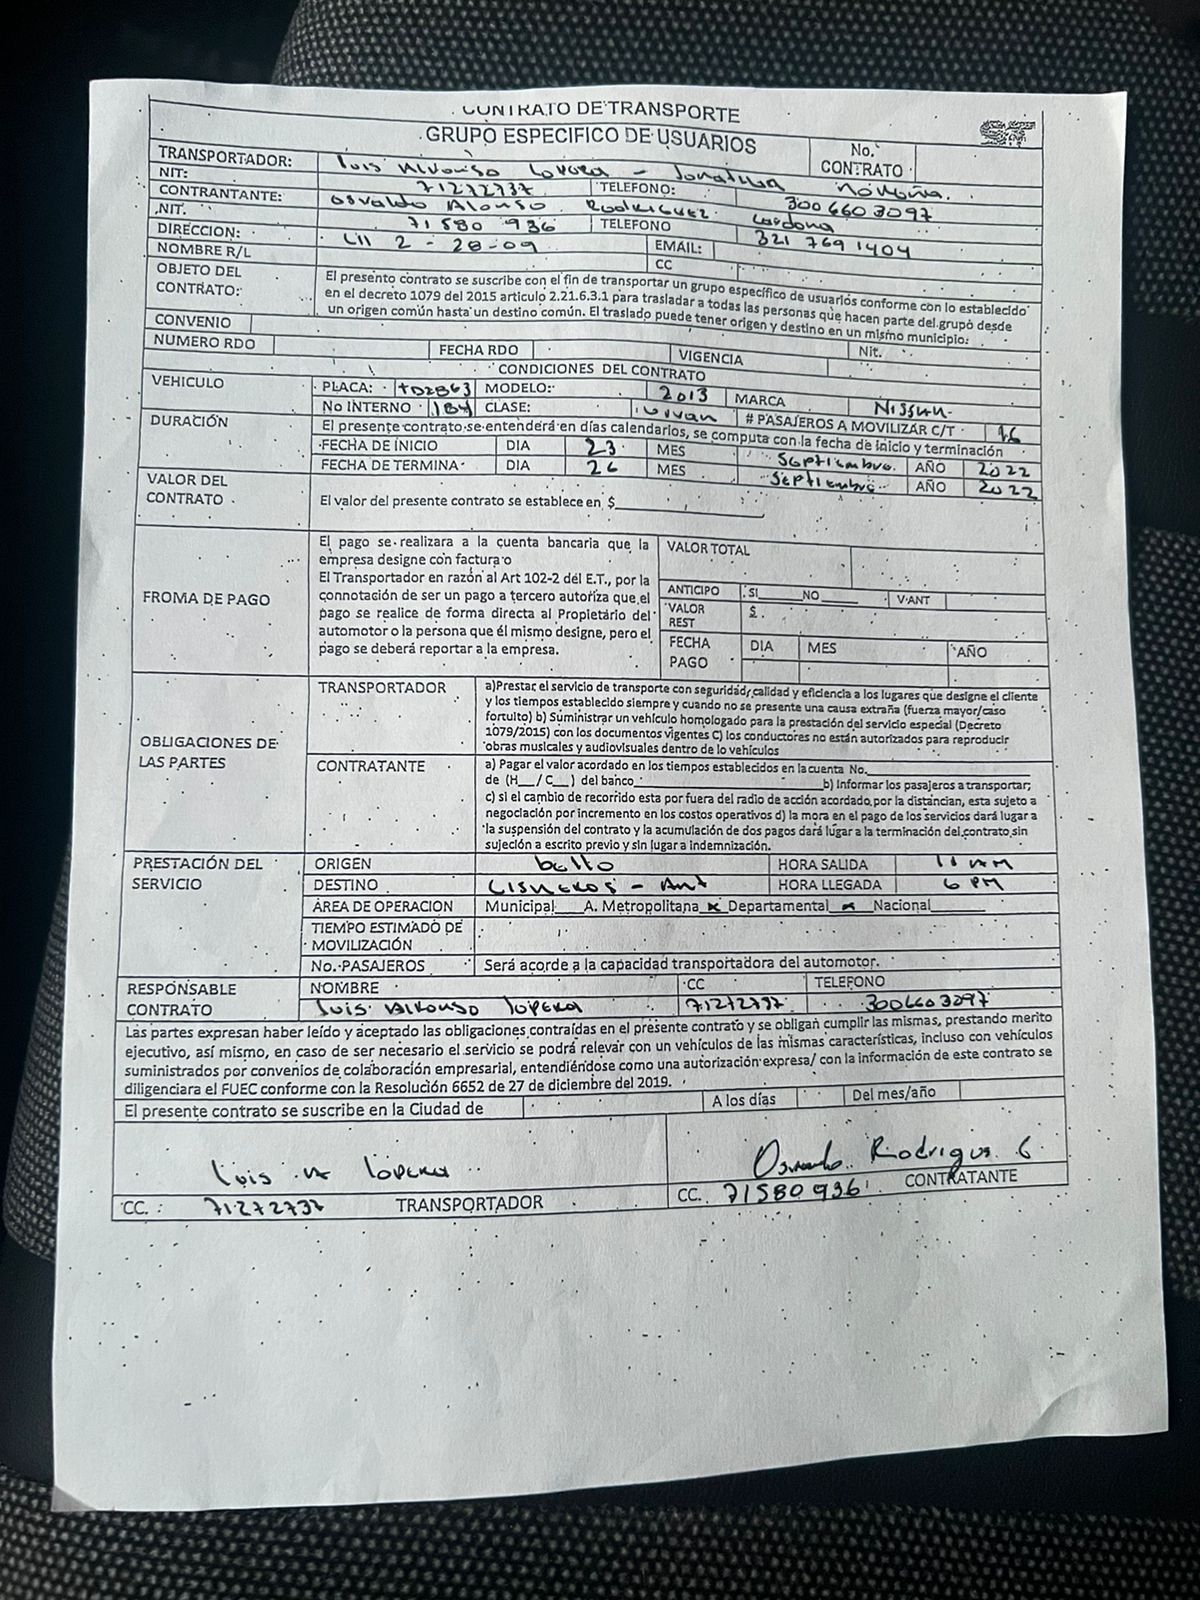 CONTRATO DE TRANSPORTE
GRUPO ESPECIFICO DE USUARIOS
No. CONTRATO
TRANSPORTADOR: Luis Alfonso Lopera - Jonathan Noreña.
NIT: 71272737 TELEFONO: 300 660 3097
CONTRATANTE: Osvaldo Alonso Rodriguez Cardona
NIT. 71 580 936 TELEFONO 321 769 1404
DIRECCION: Cll 2 - 28-09 EMAIL:
NOMBRE R/L CC
OBJETO DEL CONTRATO: El presento contrato se suscribe con el fin de transportar un grupo específico de usuarios conforme con lo establecido
en el decreto 1079 del 2015 articulo 2.21.6.3.1 para trasladar a todas las personas que hacen parte del grupo desde
un origen común hasta un destino común. El traslado puede tener origen y destino en un mismo municipio.
CONVENIO Nit.
NUMERO RDO FECHA RDO VIGENCIA
CONDICIONES DEL CONTRATO
VEHICULO PLACA: TDZ863 MODELO: 2013 MARCA Nissan
No INTERNO 184 CLASE: # PASAJEROS A MOVILIZAR C/T 16
DURACIÓN El presente contrato se entenderá en días calendarios, se computa con la fecha de inicio y terminación
FECHA DE INICIO DIA 23 MES Septiembre. AÑO 2022
FECHA DE TERMINA DIA 26 MES Septiembre AÑO 2022
VALOR DEL CONTRATO El valor del presente contrato se establece en $
FROMA DE PAGO El pago se realizara a la cuenta bancaria que la
empresa designe con factura o
El Transportador en razón al Art 102-2 del E.T., por la
connotación de ser un pago a tercero autoriza que el
pago se realice de forma directa al Propietario del
automotor o la persona que él mismo designe, pero el
pago se deberá reportar a la empresa.
VALOR TOTAL
ANTICIPO SI____NO____ V·ANT
VALOR REST $
FECHA PAGO DIA MES AÑO
OBLIGACIONES DE LAS PARTES
TRANSPORTADOR a)Prestar el servicio de transporte con seguridad, calidad y eficiencia a los lugares que designe el cliente
y los tiempos establecido siempre y cuando no se presente una causa extraña (fuerza mayor/caso
fortuito) b) Suministrar un vehículo homologado para la prestación del servicio especial (Decreto
1079/2015) con los documentos vigentes C) los conductores no están autorizados para reproducir
obras musicales y audiovisuales dentro de lo vehículos
CONTRATANTE a) Pagar el valor acordado en los tiempos establecidos en la cuenta No.
de (H__/ C__) del banco b) Informar los pasajeros a transportar;
c) si el cambio de recorrido esta por fuera del radio de acción acordado por la distancian, esta sujeto a
negociación por incremento en los costos operativos d) la mora en el pago de los servicios dará lugar a
la suspensión del contrato y la acumulación de dos pagos dará lugar a la terminación del contrato sin
sujeción a escrito previo y sin lugar a indemnización.
PRESTACIÓN DEL SERVICIO
ORIGEN bello HORA SALIDA 11 AM
DESTINO Cisneros - Ant HORA LLEGADA 6 PM
ÁREA DE OPERACION Municipal___A. Metropolitana x Departamental x Nacional______
TIEMPO ESTIMADO DE MOVILIZACIÓN
No. PASAJEROS Será acorde a la capacidad transportadora del automotor.
RESPONSABLE CONTRATO NOMBRE CC TELEFONO
Luis Alfonso Lopera 71272737 3006603097
Las partes expresan haber leído y aceptado las obligaciones contraídas en el presente contrato y se obligan cumplir las mismas, prestando merito
ejecutivo, así mismo, en caso de ser necesario el servicio se podrá relevar con un vehículos de las mismas características, incluso con vehículos
suministrados por convenios de colaboración empresarial, entendiéndose como una autorización expresa/ con la información de este contrato se
diligenciara el FUEC conforme con la Resolución 6652 de 27 de diciembre del 2019.
El presente contrato se suscribe en la Ciudad de A los días Del mes/año
Luis A Lopera Osvaldo Rodrigue C
CC. : 71272737 TRANSPORTADOR CC. 71580936 CONTRATANTE